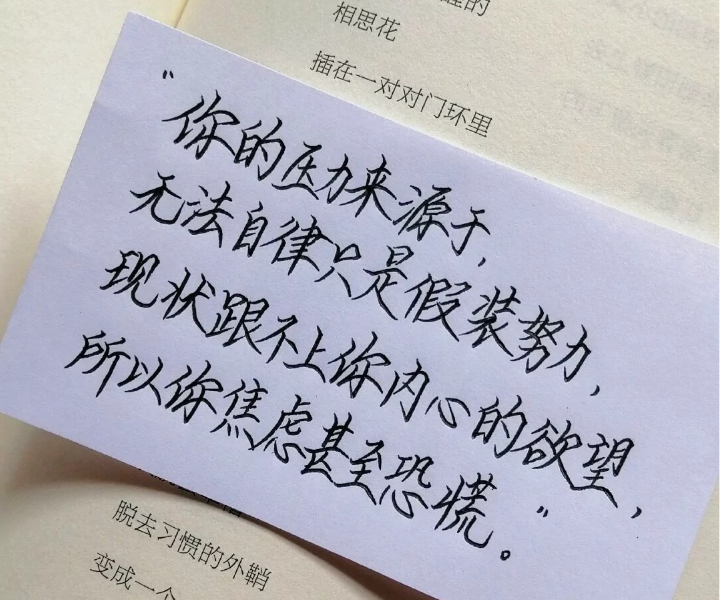 醒的
相思花
插在一对对门环里
"你的压力来源于,
无法自律只是假装努力,
现状跟不上你内心的欲望,
所以你焦虑甚至恐慌。"
脱去习惯的外鞘
变成一个